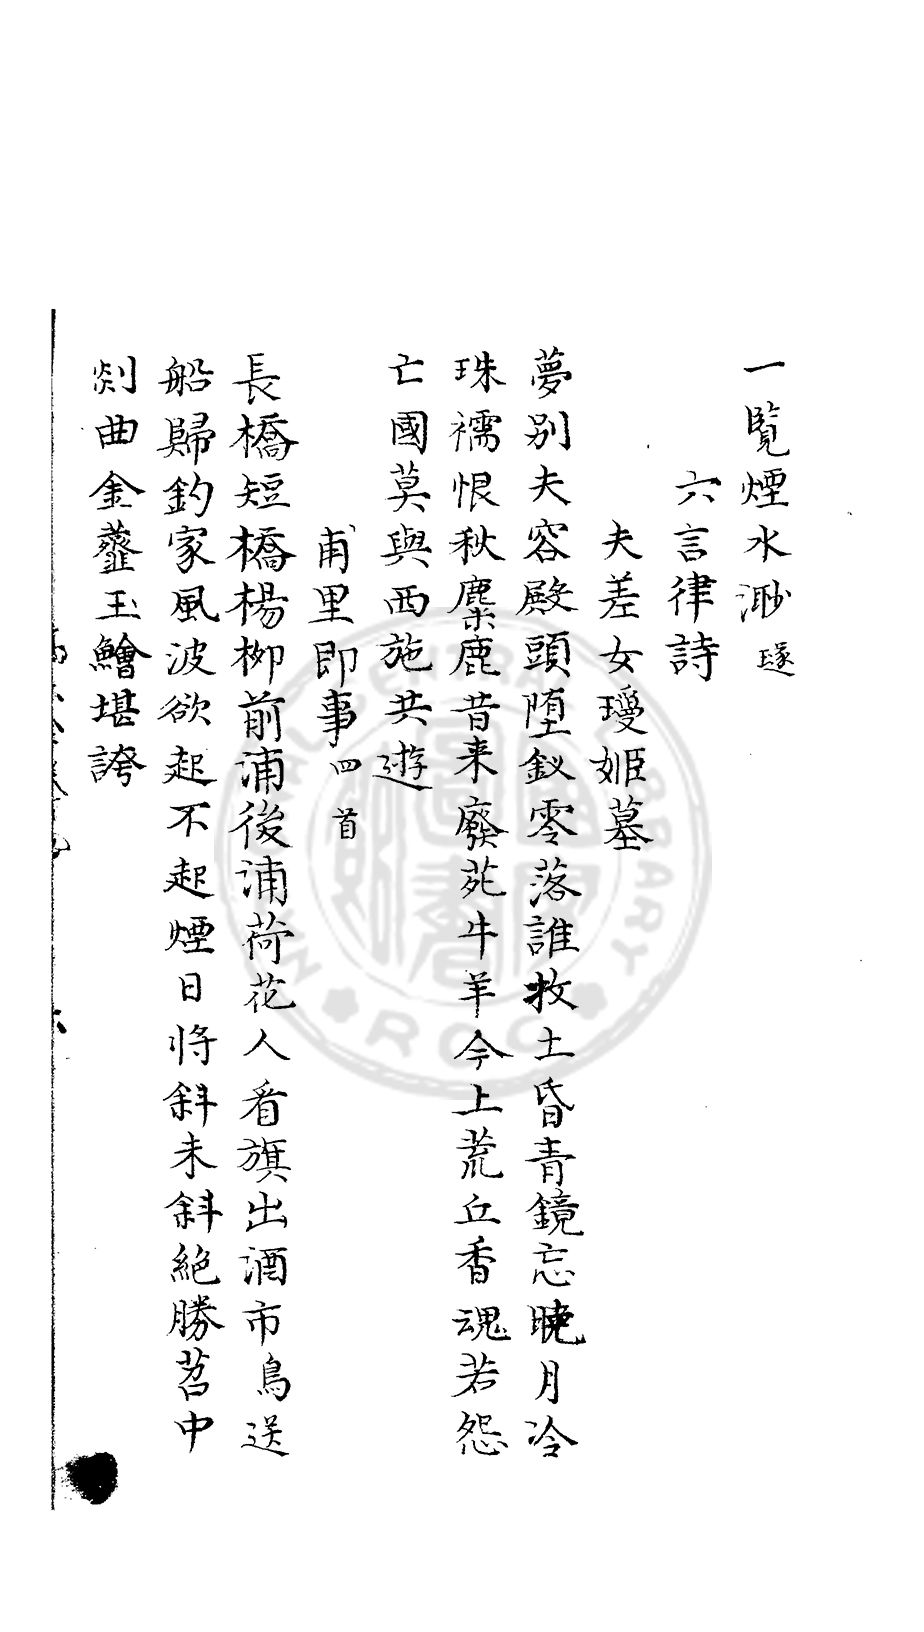 一覽煙水渺 璲
六言律詩
夫差女瓊姬墓
夢別夫容殿頭墮釵零落誰收土昏青鏡忘曉月冷
珠襦恨秋麋鹿昔来廢苑牛羊今上荒丘香魂若怨
亡國莫與西施共遊
甫里即事 四首
長橋短橋楊柳前浦後浦荷花人看旗出酒市鳥送
船歸釣家風波欲起不起煙日将斜未斜絶勝苕中
剡曲金虀玉鱠堪誇